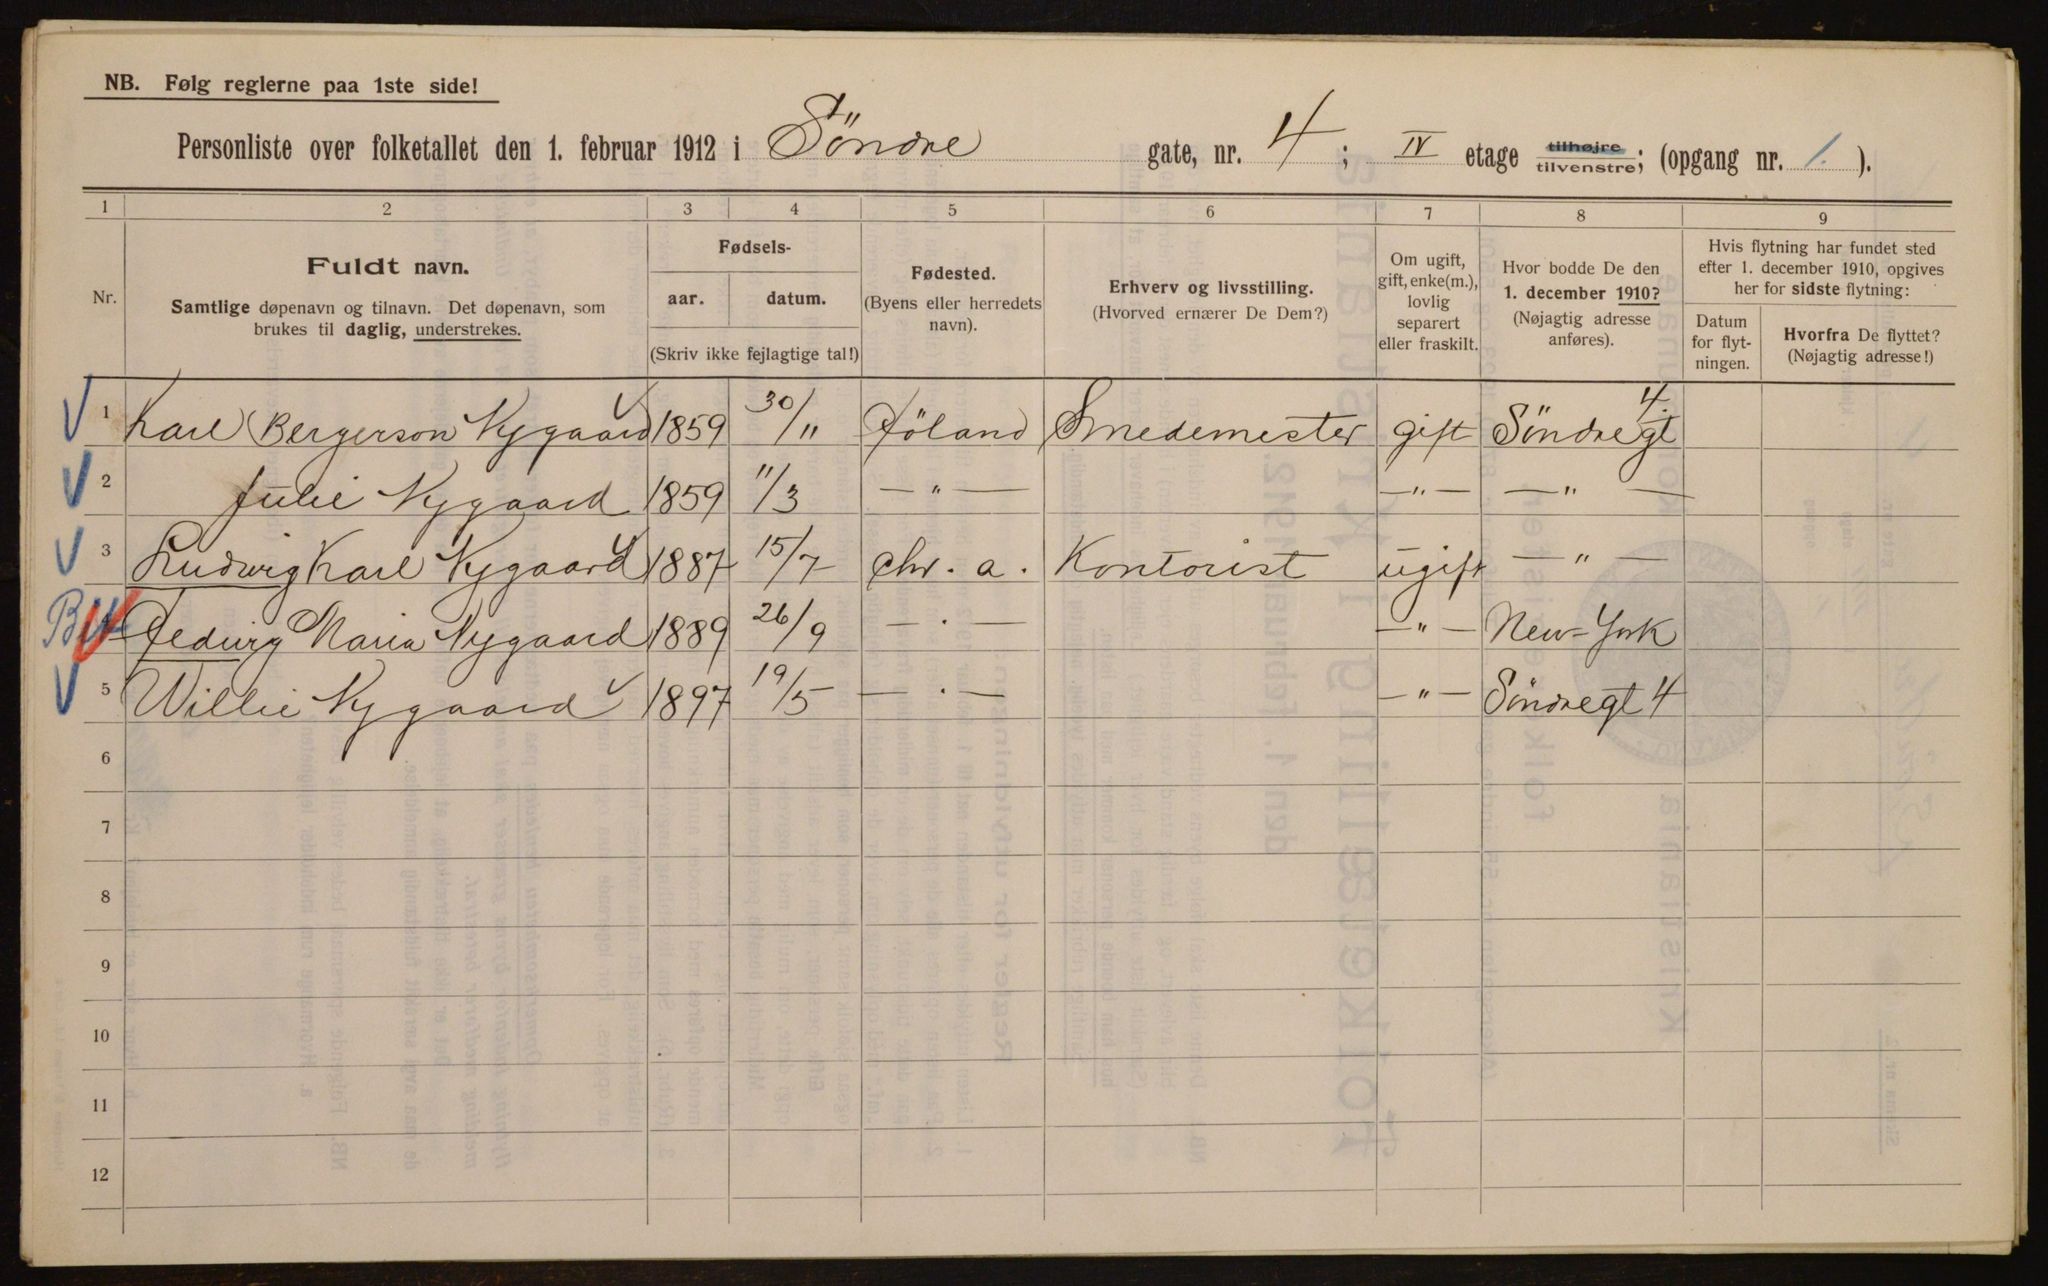 NB. Følg reglerne paa 1ste side!
Personliste over folketallet den 1. februar 1912 i Söndre gate, nr. 4 ; IV etage tilhøjre tilvenstre; (opgang nr. 1. ).
1 2 3 4 5 6 7 8 9
Nr.
Fuldt navn.
Samtlige døpenavn og tilnavn. Det døpenavn, som
brukes til daglig, understrekes.
Fødsels-
aar. datum.
(Skriv ikke fejlagtige tal!)
Fødested.
(Byens eller herredets
navn).
Erhverv og livsstilling.
(Hvorved ernærer De Dem?)
Om ugift,
gift, enke(m.),
lovlig
separert
eller fraskilt.
Hvor bodde De den
1. december 1910?
(Nøjagtig adresse
anføres).
Hvis flytning har fundet sted
efter 1. december 1910, opgives
her for sidste flytning:
Datum
for flyt-
ningen.
Hvorfra De flyttet?
(Nøjagtig adresse!)
1 Karl Bergerson Nygaard 1859 30/11 Höland Smedemester gift Söndregt 4.
2 Julie Nygaard 1859 11/3 — " — — " — — " —
3 Ludwig Karl Nygaard 1887 15/7 Chr. a. Kontorist ugift — " —
Hedwig Maria Nygaard 1889 26/9 — " — — " — New-York
5 Willie Nygaard 1897 19/5 — " — — " — Söndregt 4
6
7
8
9
10
11
12